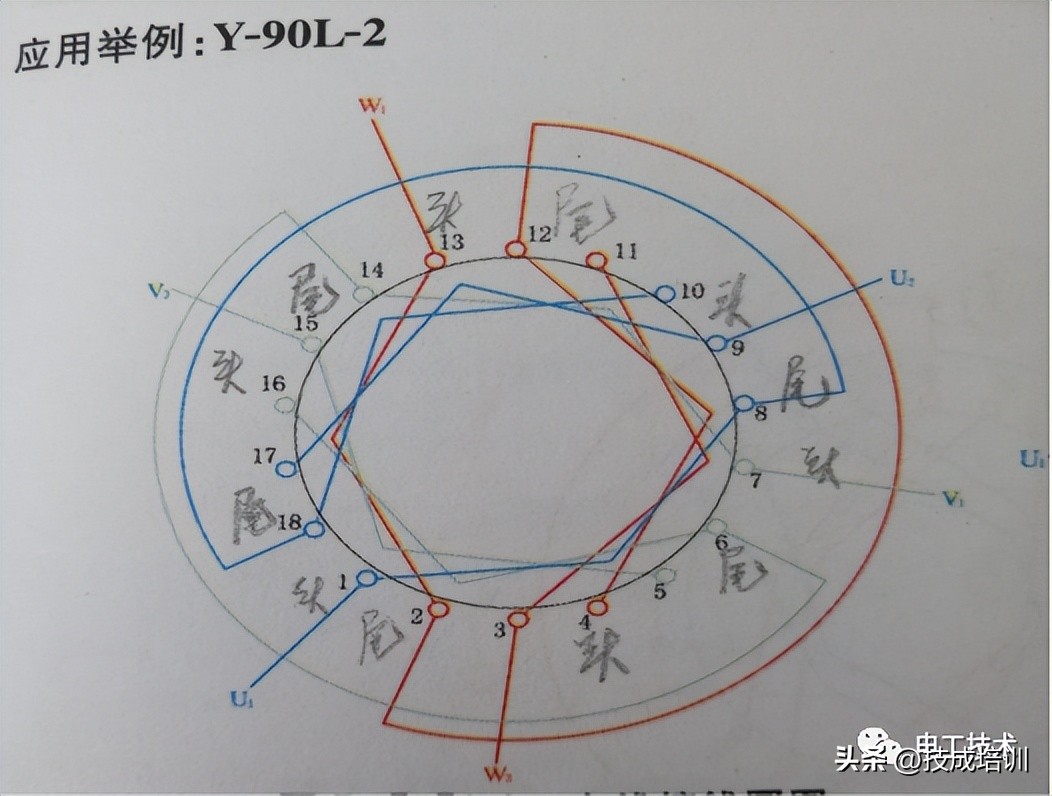 应用举例:Y-90L-2
W₁
头
12
尾
13
11
14
尾
10
头
U₂
V₂
15
9
头
16
尾
8
17
头
7
U₁
V₁
尾
18
6
尾
头
1
5
尾
2
3
4
头
U₁
W₂
电工技术
头条 @技成培训